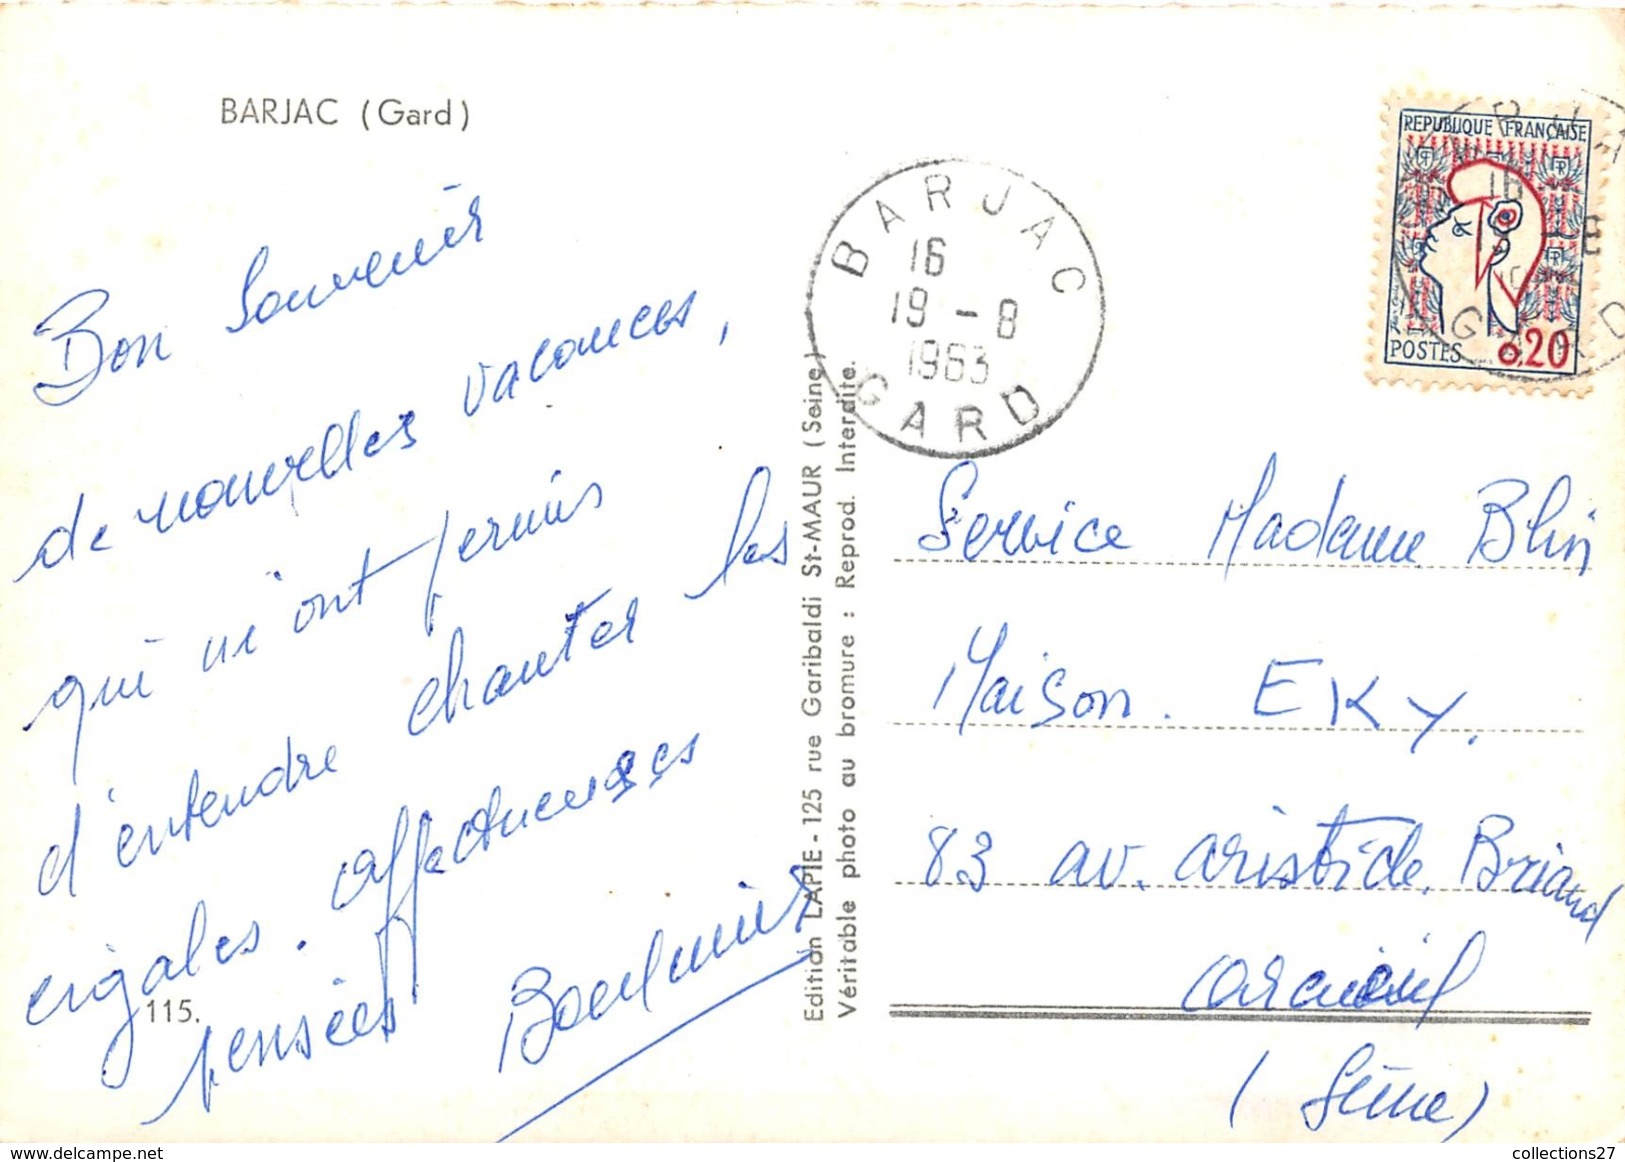 BARJAC (Gard)
Bon Souvenir
de nouvelles vacances,
qui m'ont permis
d'entendre chanter les
cigales. affectueuses
pensées
115.
Edition LAPIE - 125 rue Garibaldi St-MAUR (Seine)
Véritable photo au bromure : Reprod. Interdite.
BARJAC
16
19 - 8
1963
GARD
REPUBLIQUE FRANÇAISE
POSTES 0,20
Service Madame Blin
Maison. EKY.
83 av. aristide. Briand
arcueil
(Seine)
collections27